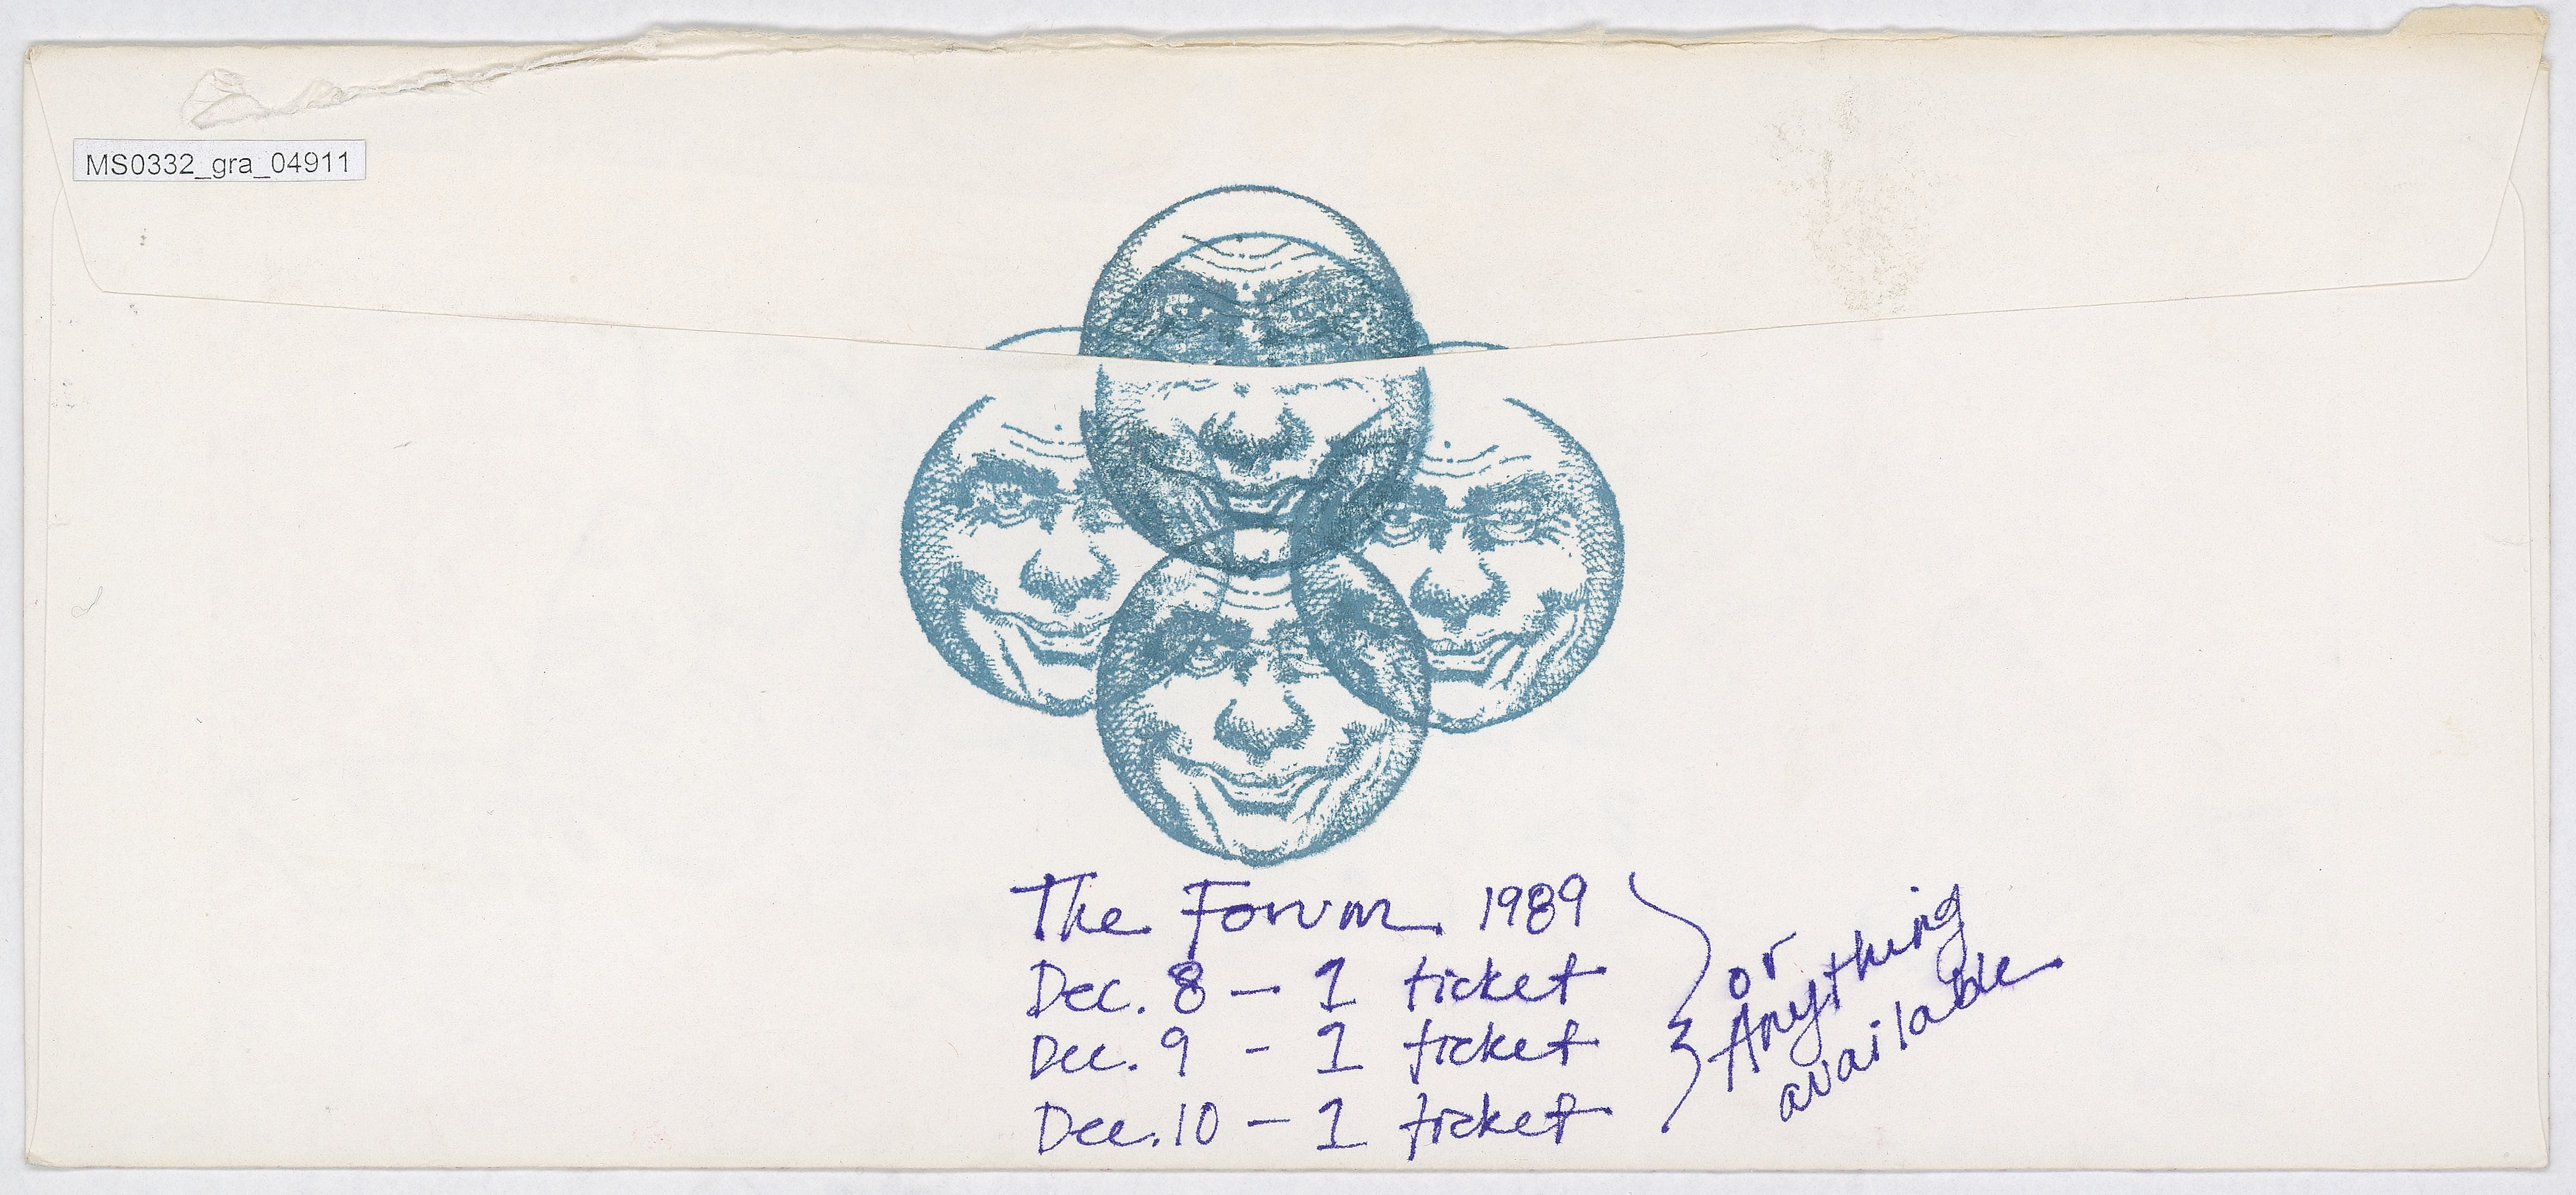 MS0332_gra_04911
The Forum 1989
Dec. 8 — 1 ticket
Dec. 9 - 1 ticket
Dec. 10 — 1 ticket
or
Anything
available